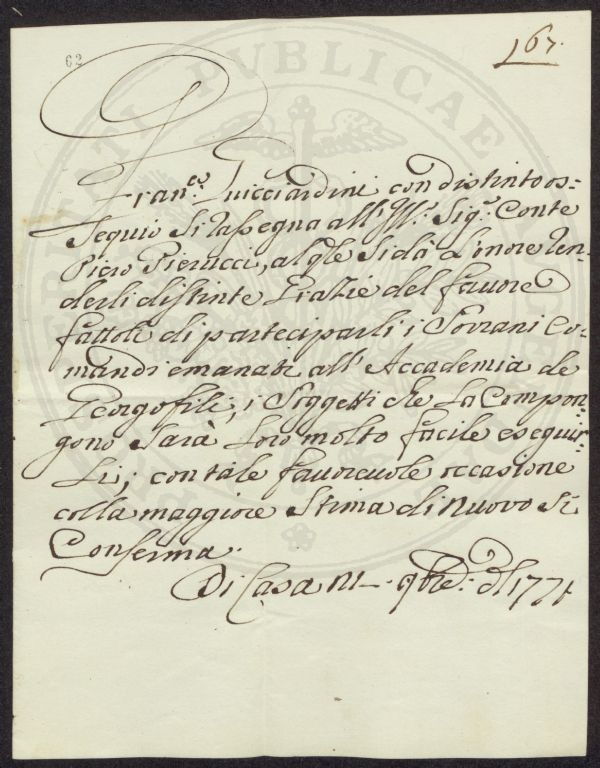 62
167.
Fran.co Guicciardini con distinto os=
sequio si rassegna all'Ill.mo Sig.r Conte
Piero Pierucci, al qle si dà l'onore ren=
derli distinte Grazie del favore
fattoli di parteciparli i Sovrani Co=
mandi emanati all'Accademia de
Georgofili, i Soggetti che la Compon=
gono Sarà loro molto facile eseguir=
li; con tale favorevole occasione
colla maggiore Stima di nuovo si
Conferma.
Di Casa li 9bre 1771
PUBLICAE